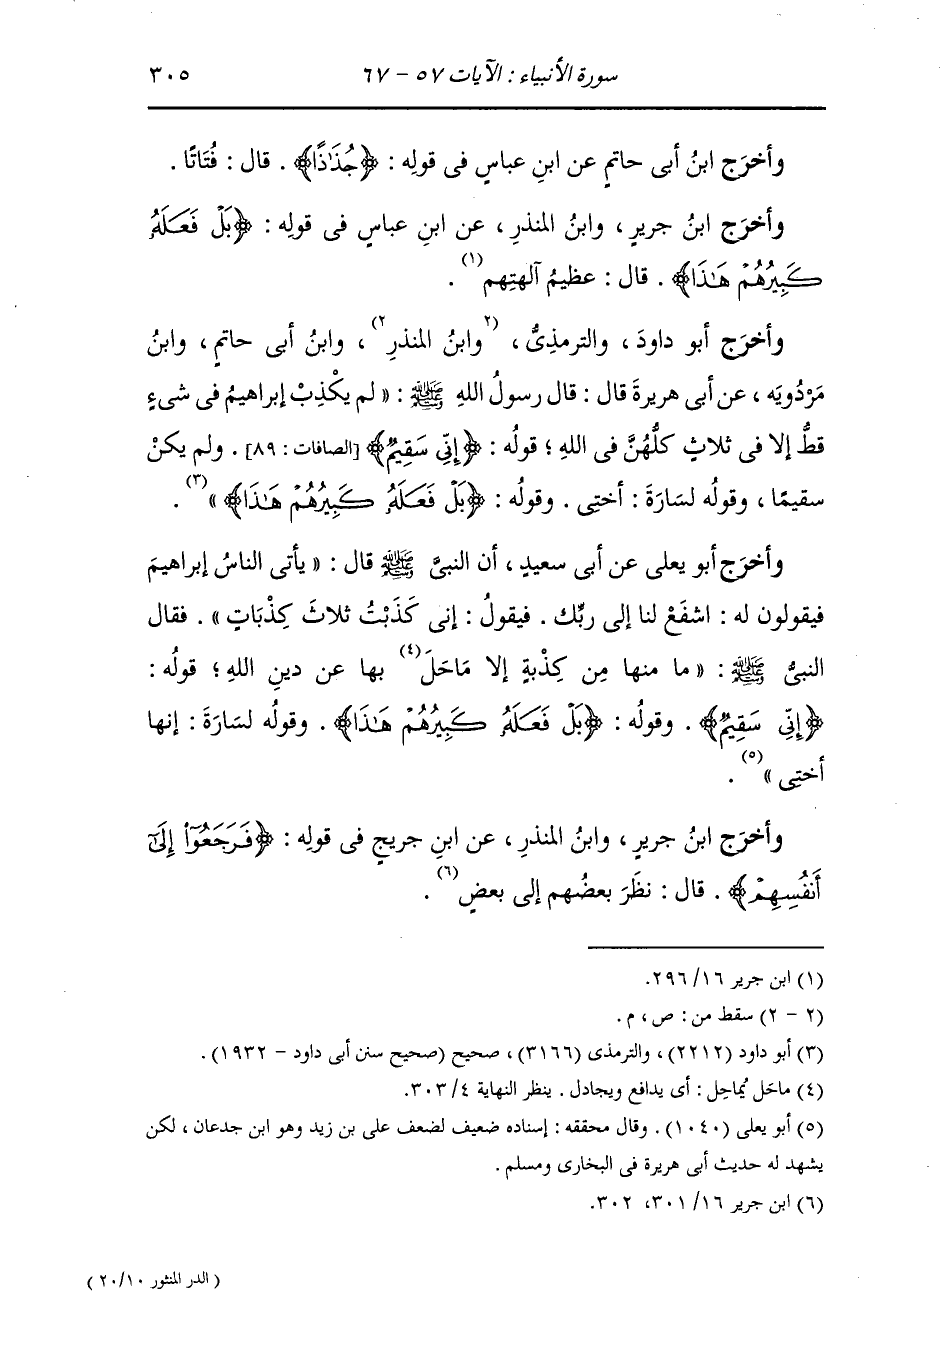 سورة الأنبياء : الآيات ٥٧ - ٦٧ ٣٠٥
وأخرَج ابنُ أبى حاتمٍ عن ابنِ عباسٍ فى قولِه : ﴿جُذَٰذًا﴾ . قال : فُتَاتًا .
وأخرَج ابنُ جريرٍ ، وابنُ المنذرِ ، عن ابنِ عباسٍ فى قولِه : ﴿بَلْ فَعَلَهُۥ
كَبِيرُهُمْ هَٰذَا﴾ . قال : عظيمُ آلهتِهم(١) .
وأخرَج أبو داودَ ، والترمذىُّ ، (٢وابنُ المنذرِ٢) ، وابنُ أبى حاتمٍ ، وابنُ
مَرْدُويَه ، عن أبى هريرةَ قال : قال رسولُ اللهِ ﷺ : « لم يكْذِبْ إبراهيمُ فى شىءٍ
قطُّ إلا فى ثلاثٍ كلُّهُنَّ فى اللهِ ؛ قولُه : ﴿إِنِّى سَقِيمٌ﴾ [الصافات : ٨٩] . ولم يكنْ
سقيمًا ، وقولُه لسَارَةَ : أختِى . وقولُه : ﴿بَلْ فَعَلَهُۥ كَبِيرُهُمْ هَٰذَا﴾ »(٣) .
وأخرَج أبو يعلى عن أبى سعيدٍ ، أن النبىَّ ﷺ قال : « يأتى الناسُ إبراهيمَ
فيقولون له : اشفَعْ لنا إلى ربِّك . فيقولُ : إنى كَذَبْتُ ثلاثَ كِذْبَاتٍ » . فقال
النبىُّ ﷺ : « ما منها مِن كِذْبةٍ إلا مَاحَلَ(٤) بها عن دينِ اللهِ ؛ قولُه :
﴿إِنِّى سَقِيمٌ﴾ . وقولُه : ﴿بَلْ فَعَلَهُۥ كَبِيرُهُمْ هَٰذَا﴾ . وقولُه لسَارَةَ : إنها
أختِى »(٥) .
وأخرَج ابنُ جريرٍ ، وابنُ المنذرِ ، عن ابنِ جريجٍ فى قولِه : ﴿فَرَجَعُوٓا۟ إِلَىٰٓ
أَنفُسِهِمْ﴾ . قال : نظَرَ بعضُهم إلى بعضٍ(٦) .
(١) ابن جرير ١٦/ ٢٩٦.
(٢ - ٢) سقط من : ص ، م .
(٣) أبو داود (٢٢١٢) ، والترمذى (٣١٦٦) ، صحيح (صحيح سنن أبى داود - ١٩٣٢) .
(٤) ماحَل يُماحِل : أى يدافع ويجادل . ينظر النهاية ٤/ ٣٠٣.
(٥) أبو يعلى (١٠٤٠) . وقال محققه : إسناده ضعيف لضعف على بن زيد وهو ابن جدعان ، لكن
يشهد له حديث أبى هريرة فى البخارى ومسلم .
(٦) ابن جرير ١٦/ ٣٠١، ٣٠٢.
( الدر المنثور ٢٠/١٠ )